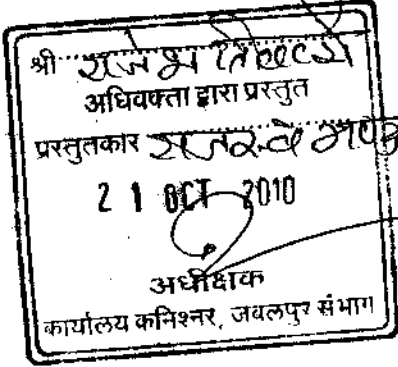 श्री राजेश
अधिवक्ता द्वारा प्रस्तुत
प्रस्तुतकार राजस्व
2 1 OCT 2010
अधीक्षक
कार्यालय कमिश्नर, जबलपुर संभाग